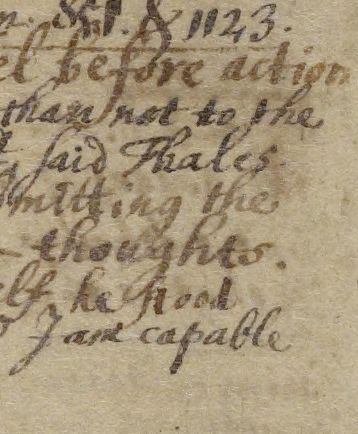 & 1123.
before action
than not to the
said Thales.
mitting the
thoughts.
he stood
I am capable